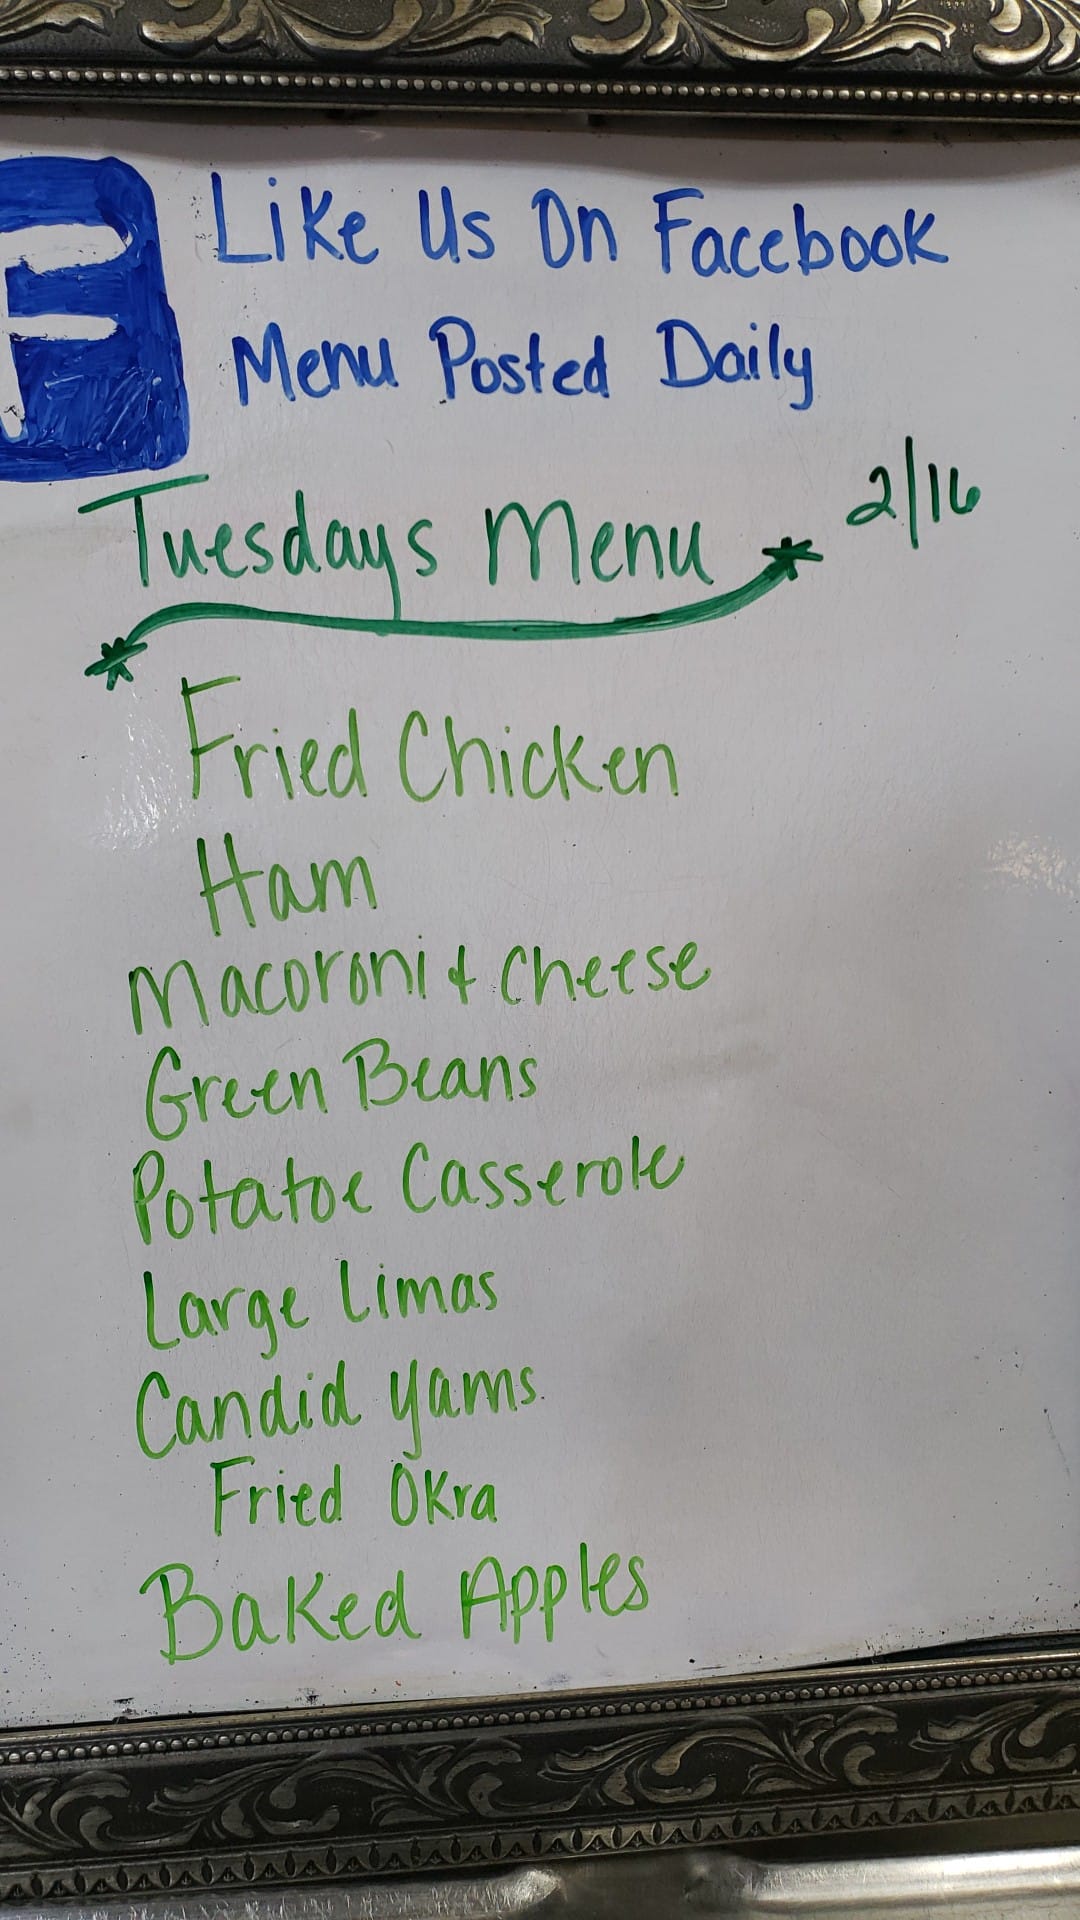 F
Like Us On Facebook
Menu Posted Daily
Tuesdays Menu 2/16
Fried Chicken
Ham
Macoroni & Cheese
Green Beans
Potatoe Casserole
Large Limas
Candid Yams
Fried Okra
Baked Apples